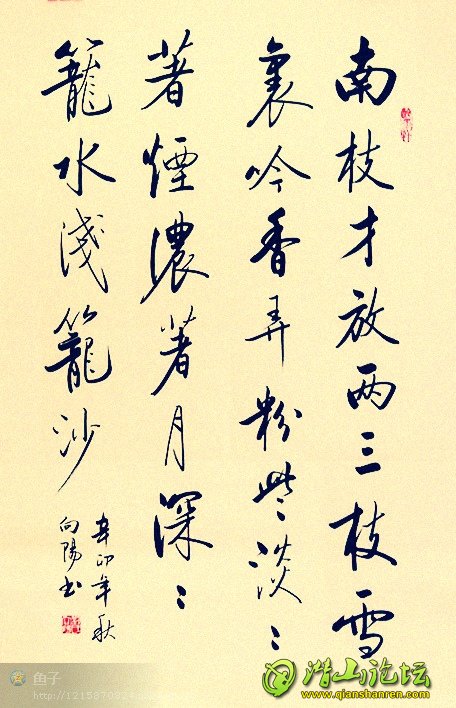 南枝才放两三枝雪
裏吟香弄粉些淡〻
著煙濃著月深〻
籠水淺籠沙
辛卯年秋
向陽书
鱼子
潜山论坛
www.qianshanren.com